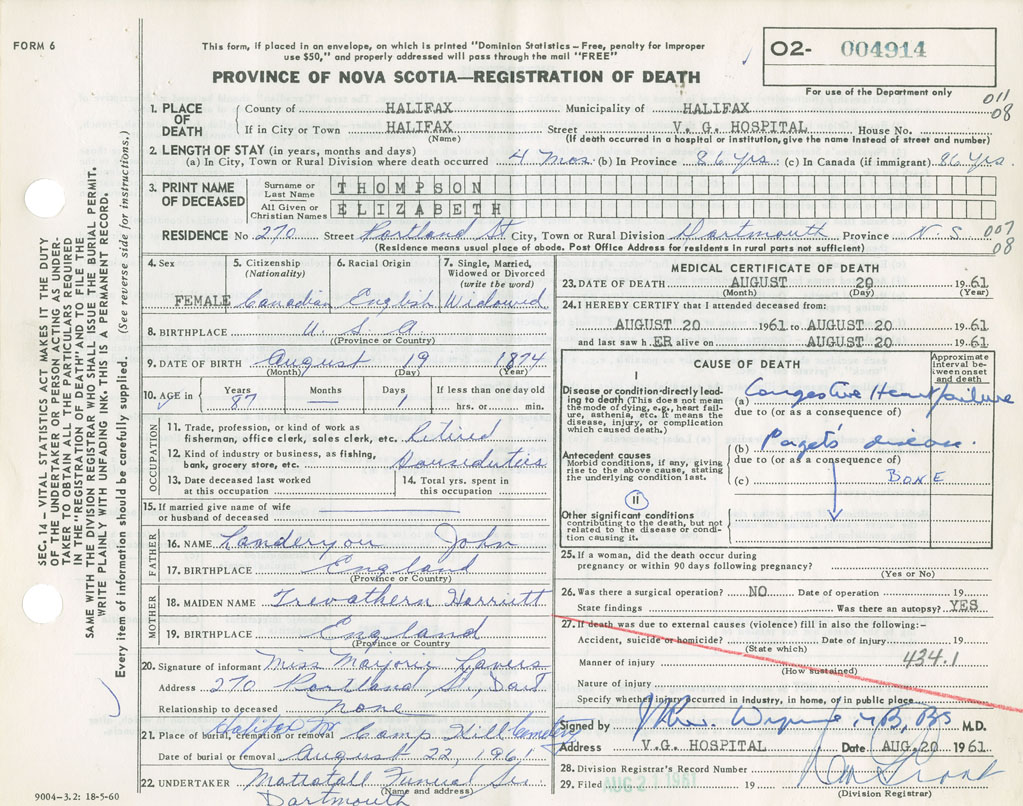 FORM 6
This form, if placed in an envelope, on which is printed "Dominion Statistics—Free, penalty for improper
use $50," and properly addressed will pass through the mail "FREE"
PROVINCE OF NOVA SCOTIA—REGISTRATION OF DEATH
O2- 004914
For use of the Department only
011
08
1. PLACE OF DEATH
County of HALIFAX Municipality of HALIFAX
If in City or Town HALIFAX Street V. G. HOSPITAL House No.
(Name) (If death occurred in a hospital or institution, give the name instead of street and number)
2. LENGTH OF STAY (in years, months and days)
(a) In City, Town or Rural Division where death occurred 4 Mos. (b) In Province 86 yrs. (c) In Canada (if immigrant) 86 yrs.
3. PRINT NAME OF DECEASED
Surname or Last Name THOMPSON
All Given or Christian Names ELIZABETH
RESIDENCE No 270 Street Portland St City, Town or Rural Division Dartmouth Province N.S. 007
(Residence means usual place of abode. Post Office Address for residents in rural parts not sufficient) 08
4. Sex FEMALE
5. Citizenship (Nationality) Canadian
6. Racial Origin English
7. Single, Married, Widowed or Divorced (write the word) Widowed
8. BIRTHPLACE U.S.A
(Province or Country)
9. DATE OF BIRTH August 19 1874
(Month) (Day) (Year)
10. AGE in Years 87 Months — Days 1 If less than one day old hrs. or min.
OCCUPATION
11. Trade, profession, or kind of work as
fisherman, office clerk, sales clerk, etc. Retired
12. Kind of industry or business, as fishing,
bank, grocery store, etc. Housiduties
13. Date deceased last worked
at this occupation
14. Total yrs. spent in
this occupation
15. If married give name of wife
or husband of deceased
FATHER
16. NAME Landeryou John
17. BIRTHPLACE England
(Province or Country)
MOTHER
18. MAIDEN NAME Trevathern Harriett
19. BIRTHPLACE England
(Province or Country)
20. Signature of informant Miss Marjorie Lavers
Address 270 Portland St., Dart
Relationship to deceased None
21. Place of burial, cremation or removal Halifax Camp Hill Cemetery
Date of burial or removal August 22, 1961
22. UNDERTAKER Mattatall Funeral Ser.
(Name and address)
Dartmouth
9004-3.2: 18-5-60
MEDICAL CERTIFICATE OF DEATH
23. DATE OF DEATH AUGUST 20 1961
(Month) (Day) (Year)
24. I HEREBY CERTIFY that I attended deceased from:
AUGUST 20 1961 to AUGUST 20 1961
and last saw h ER alive on AUGUST 20 1961
CAUSE OF DEATH
Approximate interval between onset and death
I
Disease or condition directly leading
to death (This does not mean
the mode of dying, e.g., heart failure,
asthenia, etc. It means the
disease, injury, or complication
which caused death.)
(a) Congestive Heart failure
due to (or as a consequence of)
(b) Paget's disease.
Antecedent causes
Morbid conditions, if any, giving
rise to the above cause, stating
the underlying condition last.
due to (or as a consequence of)
(c) BONE
II
Other significant conditions
contributing to the death, but not
related to the disease or condition
causing it.
25. If a woman, did the death occur during
pregnancy or within 90 days following pregnancy?
(Yes or No)
26. Was there a surgical operation? NO Date of operation 19
State findings Was there an autopsy? YES
27. If death was due to external causes (violence) fill in also the following:-
Accident, suicide or homicide? Date of injury 19
(State which)
Manner of injury 434.1
(How sustained)
Nature of injury
Specify whether injury occurred in industry, in home, or in public place
Signed by M.B, BS M.D.
Address V.G. HOSPITAL Date AUG. 20 1961
28. Division Registrar's Record Number
29. Filed AUG 21 1961 19
(Division Registrar)
SEC. 14 — VITAL STATISTICS ACT MAKES IT THE DUTY
OF THE UNDERTAKER OR PERSON ACTING AS UNDERTAKER
TO OBTAIN ALL THE PARTICULARS REQUIRED
IN THE "REGISTRATION OF DEATH" AND TO FILE THE
SAME WITH THE DIVISION REGISTRAR WHO SHALL ISSUE THE BURIAL PERMIT.
WRITE PLAINLY WITH UNFADING INK. THIS IS A PERMANENT RECORD.
Every item of information should be carefully supplied. (See reverse side for instructions.)